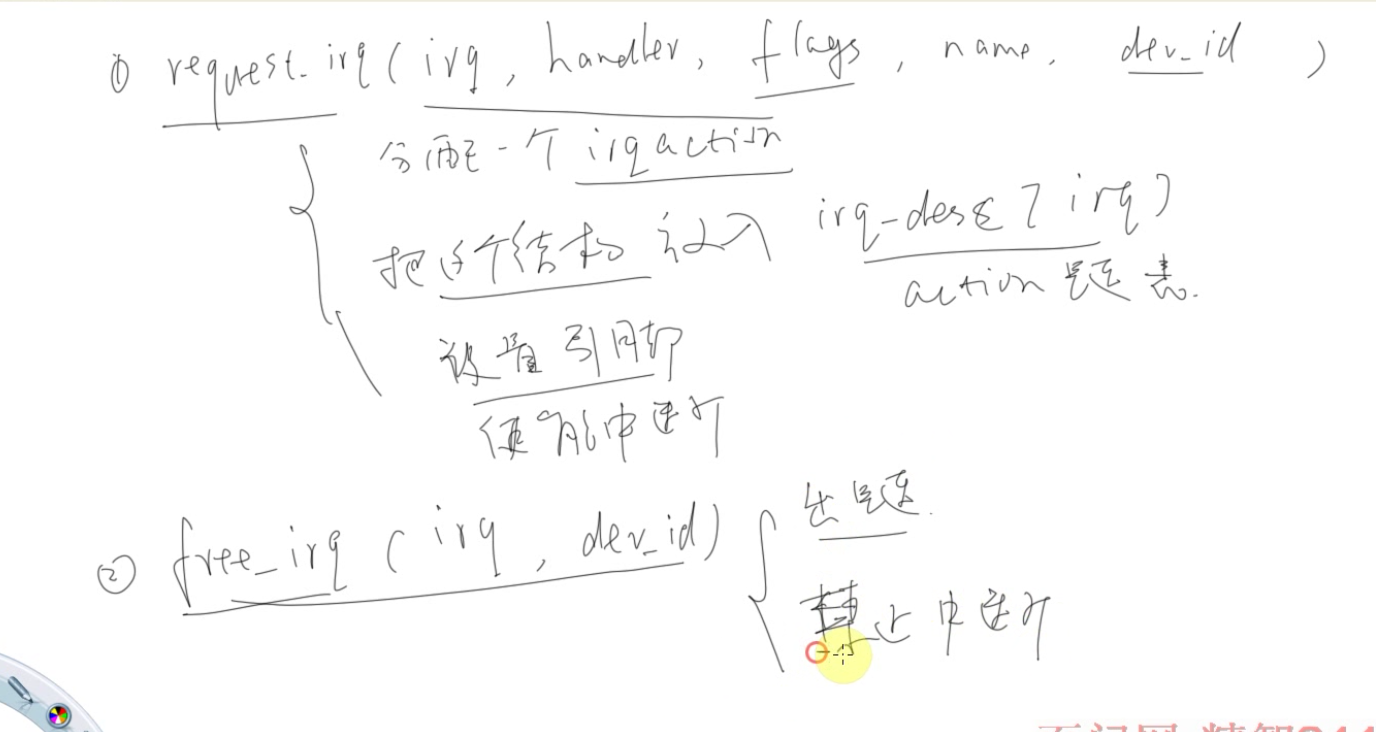 ① request_irq(irq, handler, flags, name, dev_id)
分配一个irqaction
把这个结构放入 irq-desc[irq]
action链表.
设置引脚
使能中断
② free_irq(irq, dev_id)
出链.
禁止中断